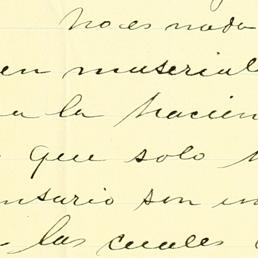 No es nada
en material
a la hacien
que solo
ntario son
las cuales